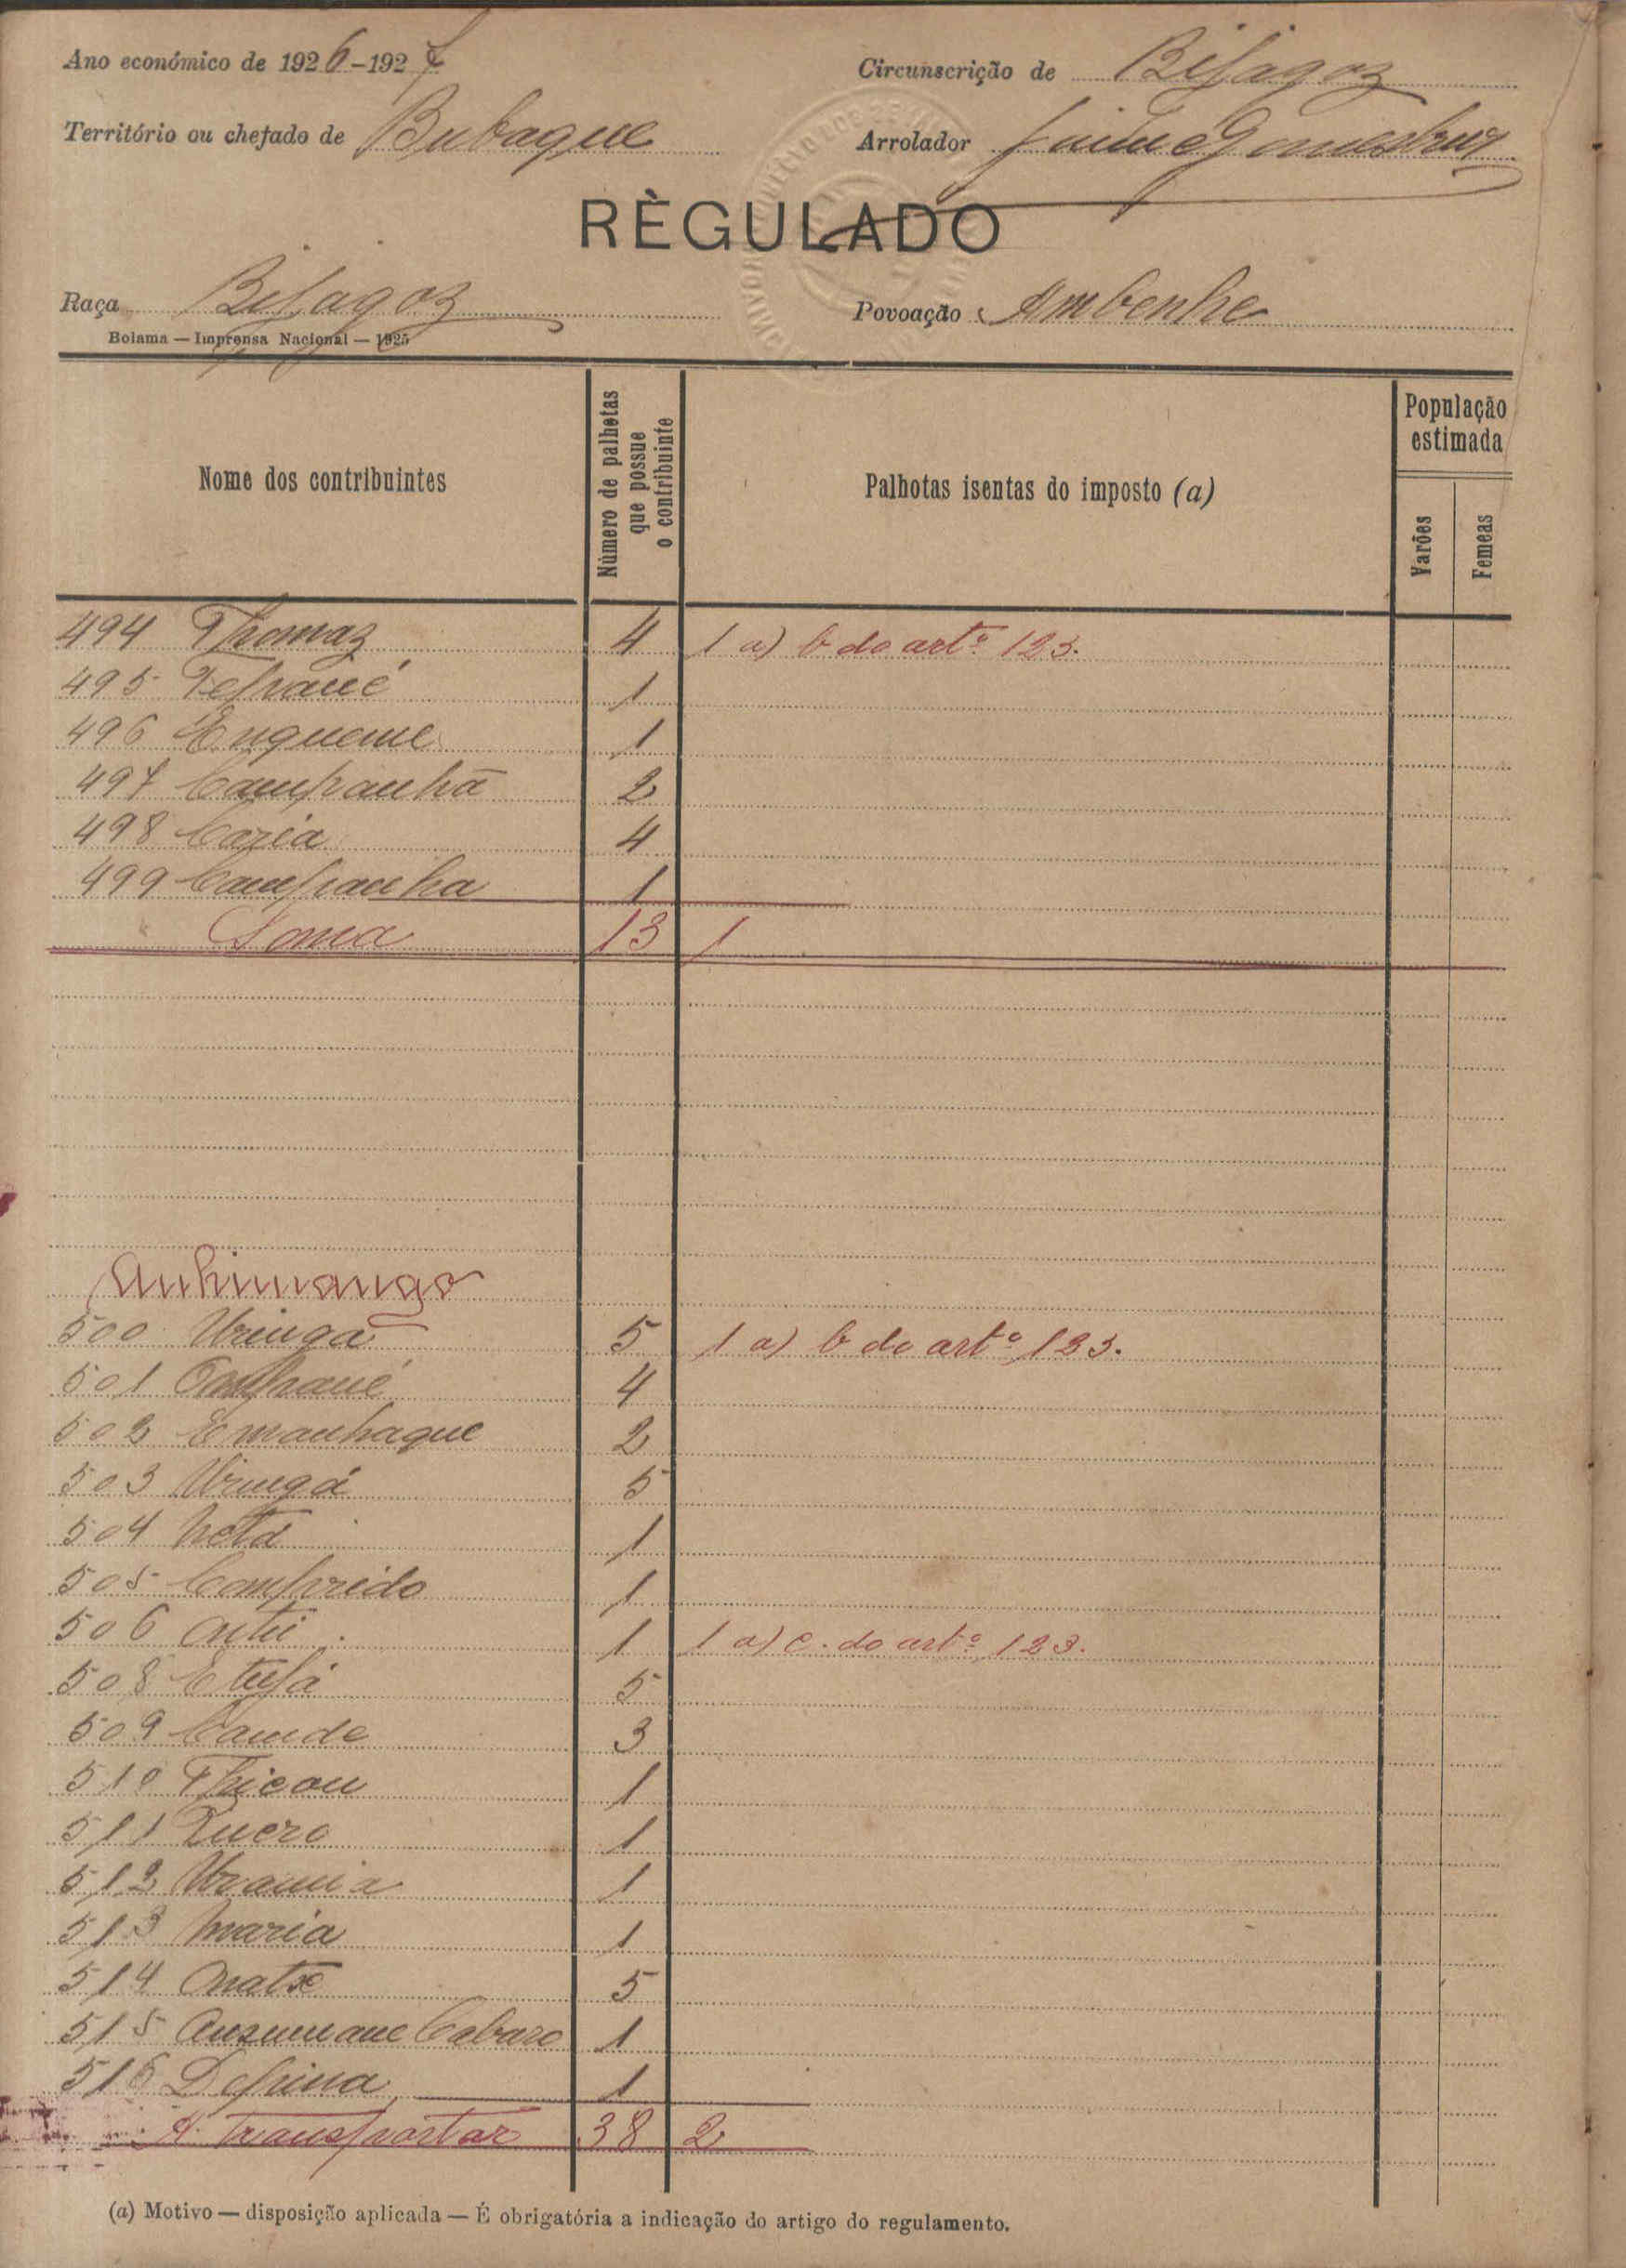 Ano económico de 1926-1927
Circunscrição de Bijagoz
Território ou chefado de Bubaque
Arrolador Jaime Gomes
RÈGULADO
Raça Bijagoz
Povoação Ambenhe
Bolama — Imprensa Nacional — 1925
Nome dos contribuintes
Número de palhetas que possue o contribuinte
Palhotas isentas do imposto (a)
População estimada
Varões
Femeas
494 Thomaz 4 1 a) b do artº 123.
495 1
496 Enqueme 1
497 Campanhã 2
498 Cazia 4
499 Campanha 1
Soma 13 1
Anhimango
500 Uringa 5 1 a) b do artº 123.
501 4
502 Emanhaque 2
503 Uringá 5
504 Neta 1
505 Comprido 1
506 1 1 a) c. do artº 123.
508 5
509 Camde 3
510 1
511 Quero 1
512 1
513 Maria 1
514 5
515 Ansumane Cabaro 1
516 Depina 1
A transportar 38 2
(a) Motivo — disposição aplicada — É obrigatória a indicação do artigo do regulamento.